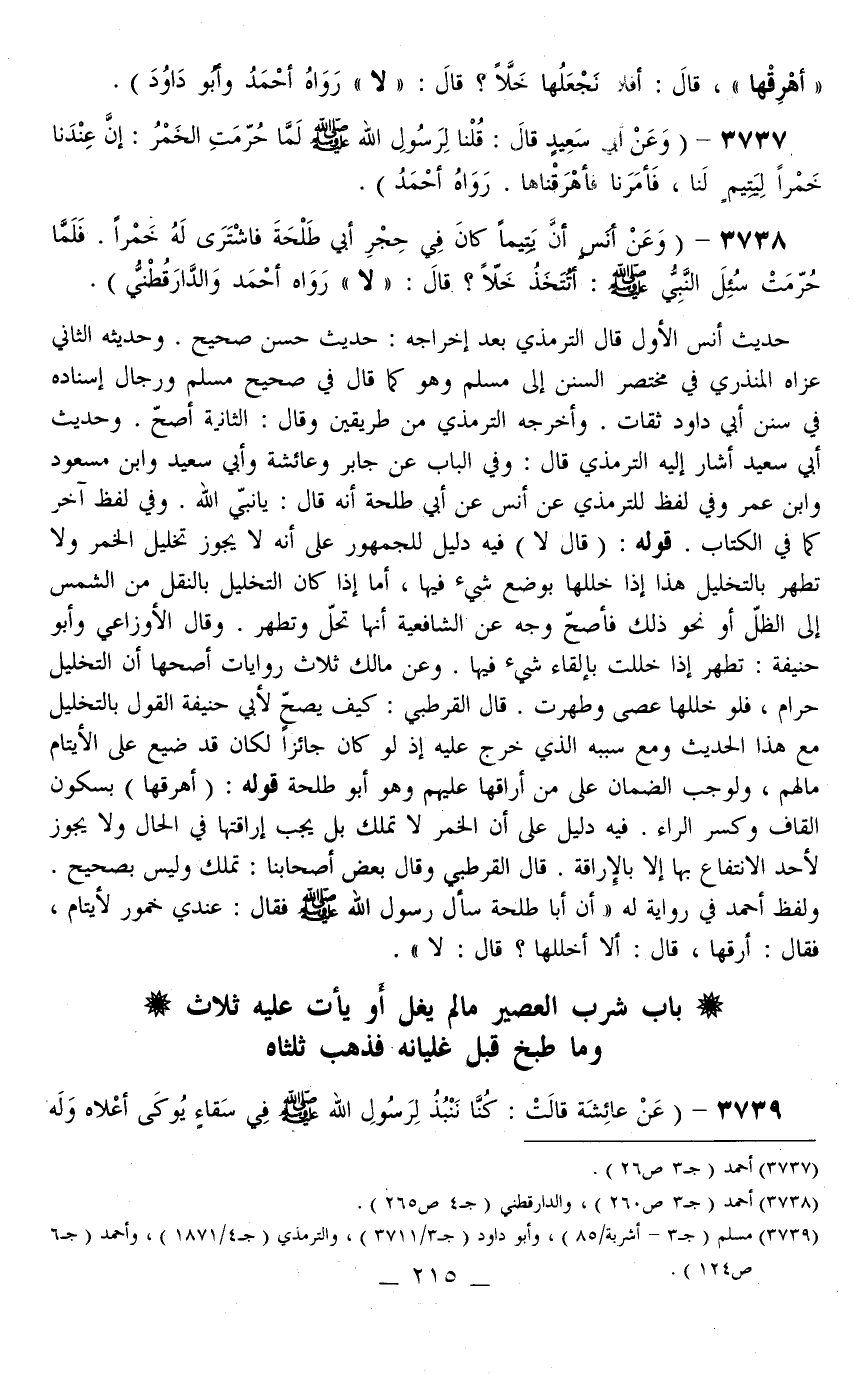 « أهْرِقْها » ، قالَ : أفلا نَجْعَلُها خَلَّاً ؟ قالَ : « لا » رَوَاهُ أحْمَدُ وأبُو دَاوُدَ ) .
٣٧٣٧ – ( وَعَنْ أبي سَعِيدٍ قالَ : قُلْنا لِرَسُولِ الله ﷺ لَمَّا حُرّمَتِ الخَمْرُ : إنَّ عِنْدَنا
خَمْراً لِيَتِيمٍ لَنا ، فَأمَرَنا فأهْرَقْناها . رَوَاهُ أحْمَدُ ) .
٣٧٣٨ – ( وَعَنْ أنَسٍ أنَّ يَتِيماً كانَ فِي حِجْرِ أبي طَلْحَةَ فاشْتَرَى لَهُ خَمْراً . فَلَمَّا
حُرّمَتْ سُئِلَ النَّبِيُّ ﷺ : أتُتَخَذُ خَلّاً ؟ قالَ : « لا » رَوَاه أحْمَد وَالدَّارَقُطْنيُّ ) .
حديث أنس الأول قال الترمذي بعد إخراجه : حديث حسن صحيح . وحديثه الثاني
عزاه المنذري في مختصر السنن إلى مسلم وهو كما قال في صحيح مسلم ورجال إسناده
في سنن أبي داود ثقات . وأخرجه الترمذي من طريقين وقال : الثانية أصحّ . وحديث
أبي سعيد أشار إليه الترمذي قال : وفي الباب عن جابر وعائشة وأبي سعيد وابن مسعود
وابن عمر وفي لفظ للترمذي عن أنس عن أبي طلحة أنه قال : يانبيّ الله . وفي لفظ آخر
كما في الكتاب . قوله : ( قال لا ) فيه دليل للجمهور على أنه لا يجوز تخليل الخمر ولا
تطهر بالتخليل هذا إذا خللها بوضع شيء فيها ، أما إذا كان التخليل بالنقل من الشمس
إلى الظلّ أو نحو ذلك فأصحّ وجه عن الشافعية أنها تحلّ وتطهر . وقال الأوزاعي وأبو
حنيفة : تطهر إذا خللت بإلقاء شيء فيها . وعن مالك ثلاث روايات أصحها أن التخليل
حرام ، فلو خللها عصى وطهرت . قال القرطبي : كيف يصحّ لأبي حنيفة القول بالتخليل
مع هذا الحديث ومع سببه الذي خرج عليه إذ لو كان جائزاً لكان قد ضيع على الأيتام
مالهم ، ولوجب الضمان على من أراقها عليهم وهو أبو طلحة قوله : ( أهرقها ) بسكون
القاف وكسر الراء . فيه دليل على أن الخمر لا تملك بل يجب إراقتها في الحال ولا يجوز
لأحد الانتفاع بها إلا بالإراقة . قال القرطبي وقال بعض أصحابنا : تملك وليس بصحيح .
ولفظ أحمد في رواية له « أن أبا طلحة سأل رسول الله ﷺ فقال : عندي خمور لأيتام ،
فقال : أرقها ، قال : ألا أخللها ؟ قال : لا » .
باب شرب العصير مالم يغل أَو يأت عليه ثلاث
وما طبخ قبل غليانه فذهب ثلثاه
٣٧٣٩ – ( عَنْ عائِشَة قالَتْ : كُنَّا نَنْبُذُ لِرَسُولِ الله ﷺ فِي سَقاءٍ يُوكَى أعْلاه وَلَه
(٣٧٣٧) أحمد ( جـ٣ ص٢٦ ) .
(٣٧٣٨) أحمد ( جـ٣ ص٢٦٠ ) ، والدارقطني ( جـ٤ ص٢٦٥ ) .
(٣٧٣٩) مسلم ( جـ٣ – أشربة/٨٥ ) ، وأبو داود ( جـ٣/٣٧١١ ) ، والترمذي ( جـ٤/١٨٧١ ) ، وأحمد ( جـ٦
ص١٢٤ ) .
– ٢١٥ –